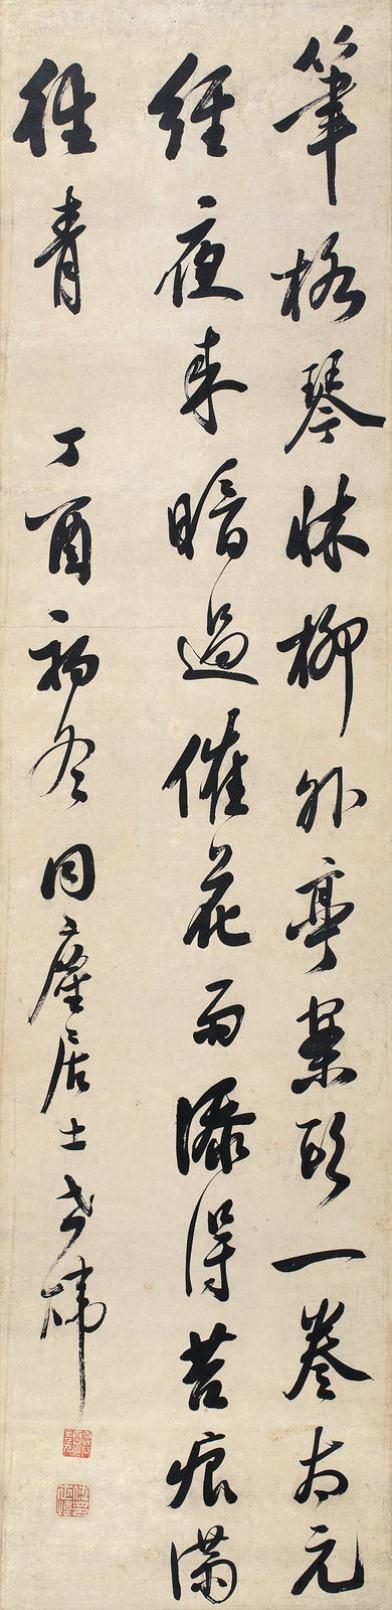 筆格琴牀柳外亭案頭一卷太元
經夜来暗過催花雨添得苔痕滿
徑青 丁酉初冬同塵居士書